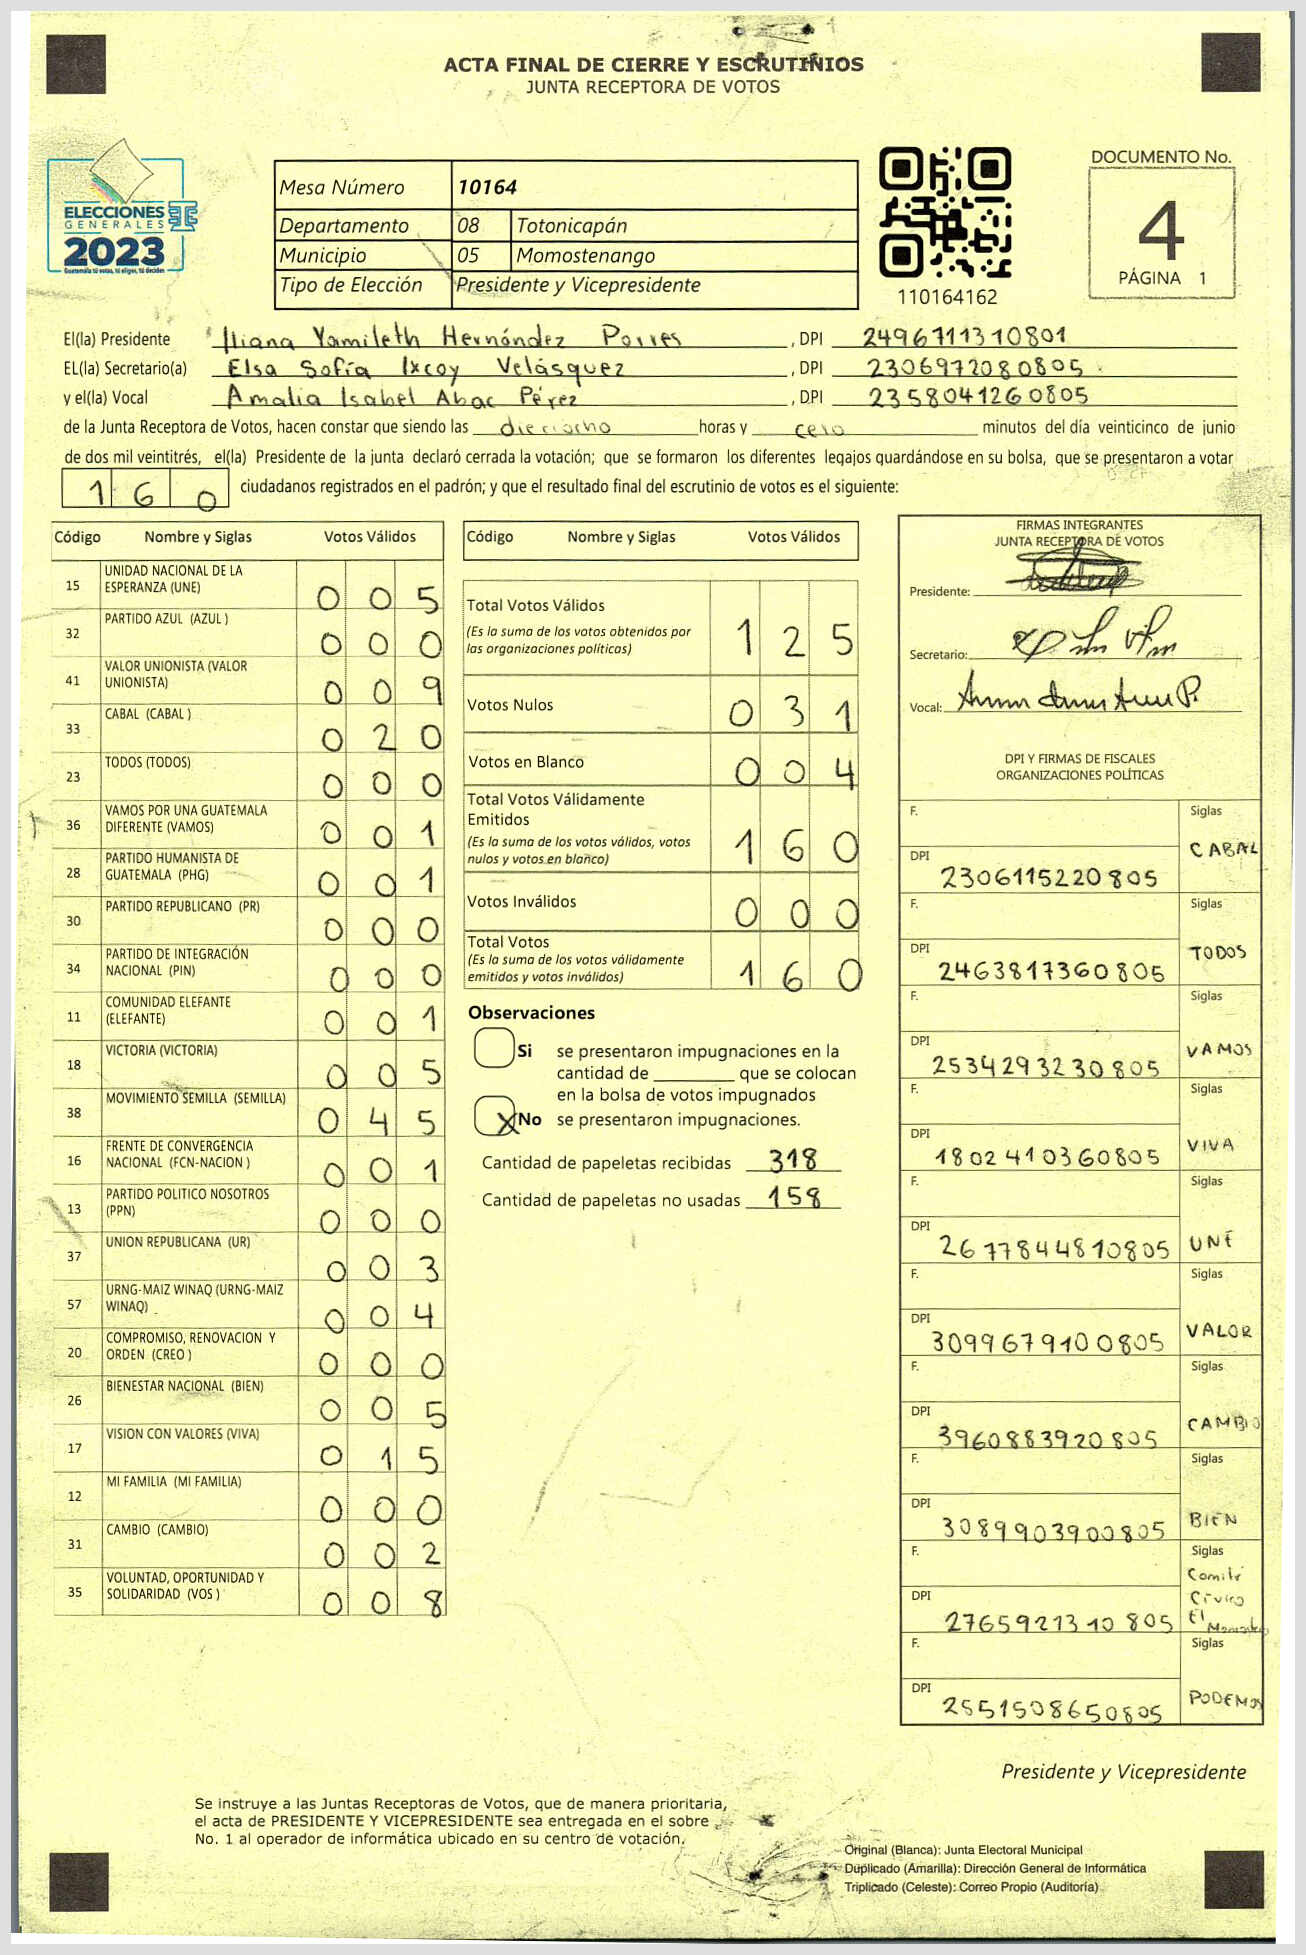 ACTA FINAL DE CIERRE Y ESCRUTINIOS
JUNTA RECEPTORA DE VOTOS
ELECCIONES
GENERALES
2023
Guatemala tú votas, tú eliges, tú decides
Mesa Número 10164
Departamento 08 Totonicapán
Municipio 05 Momostenango
Tipo de Elección Presidente y Vicepresidente
110164162
DOCUMENTO No.
4
PÁGINA 1
El(la) Presidente Iliana Yamileth Hernández Porres , DPI 2496711310801
EL(la) Secretario(a) Elsa Sofía Ixcoy Velásquez , DPI 2306972080805
y el(la) Vocal Amalia Isabel Abac Pérez , DPI 2358041260805
de la Junta Receptora de Votos, hacen constar que siendo las dieciocho horas y cero minutos del día veinticinco de junio
de dos mil veintitrés, el(la) Presidente de la junta declaró cerrada la votación; que se formaron los diferentes legajos guardándose en su bolsa, que se presentaron a votar
160 ciudadanos registrados en el padrón; y que el resultado final del escrutinio de votos es el siguiente:
Código Nombre y Siglas Votos Válidos
15 UNIDAD NACIONAL DE LA ESPERANZA (UNE) 005
32 PARTIDO AZUL (AZUL ) 000
41 VALOR UNIONISTA (VALOR UNIONISTA) 009
33 CABAL (CABAL ) 020
23 TODOS (TODOS) 000
36 VAMOS POR UNA GUATEMALA DIFERENTE (VAMOS) 001
28 PARTIDO HUMANISTA DE GUATEMALA (PHG) 001
30 PARTIDO REPUBLICANO (PR) 000
34 PARTIDO DE INTEGRACIÓN NACIONAL (PIN) 000
11 COMUNIDAD ELEFANTE (ELEFANTE) 001
18 VICTORIA (VICTORIA) 005
38 MOVIMIENTO SEMILLA (SEMILLA) 045
16 FRENTE DE CONVERGENCIA NACIONAL (FCN-NACION ) 001
13 PARTIDO POLITICO NOSOTROS (PPN) 000
37 UNION REPUBLICANA (UR) 003
57 URNG-MAIZ WINAQ (URNG-MAIZ WINAQ) 004
20 COMPROMISO, RENOVACION Y ORDEN (CREO ) 000
26 BIENESTAR NACIONAL (BIEN) 005
17 VISION CON VALORES (VIVA) 015
12 MI FAMILIA (MI FAMILIA) 000
31 CAMBIO (CAMBIO) 002
35 VOLUNTAD, OPORTUNIDAD Y SOLIDARIDAD (VOS ) 008
Código Nombre y Siglas Votos Válidos
Total Votos Válidos 125
(Es la suma de los votos obtenidos por
las organizaciones políticas)
Votos Nulos 031
Votos en Blanco 004
Total Votos Válidamente
Emitidos 160
(Es la suma de los votos válidos, votos
nulos y votos en blanco)
Votos Inválidos 000
Total Votos 160
(Es la suma de los votos válidamente
emitidos y votos inválidos)
Observaciones
Si se presentaron impugnaciones en la
cantidad de ________ que se colocan
en la bolsa de votos impugnados
X No se presentaron impugnaciones.
Cantidad de papeletas recibidas 318
Cantidad de papeletas no usadas 158
FIRMAS INTEGRANTES
JUNTA RECEPTORA DE VOTOS
Presidente:
Secretario:
Vocal:
DPI Y FIRMAS DE FISCALES
ORGANIZACIONES POLÍTICAS
F. Siglas
DPI 2306115220805 CABAL
F. Siglas
DPI 2463817360805 TODOS
F. Siglas
DPI 2534293230805 VAMOS
F. Siglas
DPI 1802410360805 VIVA
F. Siglas
DPI 2677844810805 UNE
F. Siglas
DPI 3099679100805 VALOR
F. Siglas
DPI 3960883920805 CAMBIO
F. Siglas
DPI 3089903900805 BIEN
F. Siglas
DPI 2765921310805 Comité Cívico El
F. Siglas
DPI 2551508650805 PODEMOS
Presidente y Vicepresidente
Se instruye a las Juntas Receptoras de Votos, que de manera prioritaria,
el acta de PRESIDENTE Y VICEPRESIDENTE sea entregada en el sobre
No. 1 al operador de informática ubicado en su centro de votación.
Original (Blanca): Junta Electoral Municipal
Duplicado (Amarilla): Dirección General de Informática
Triplicado (Celeste): Correo Propio (Auditoría)